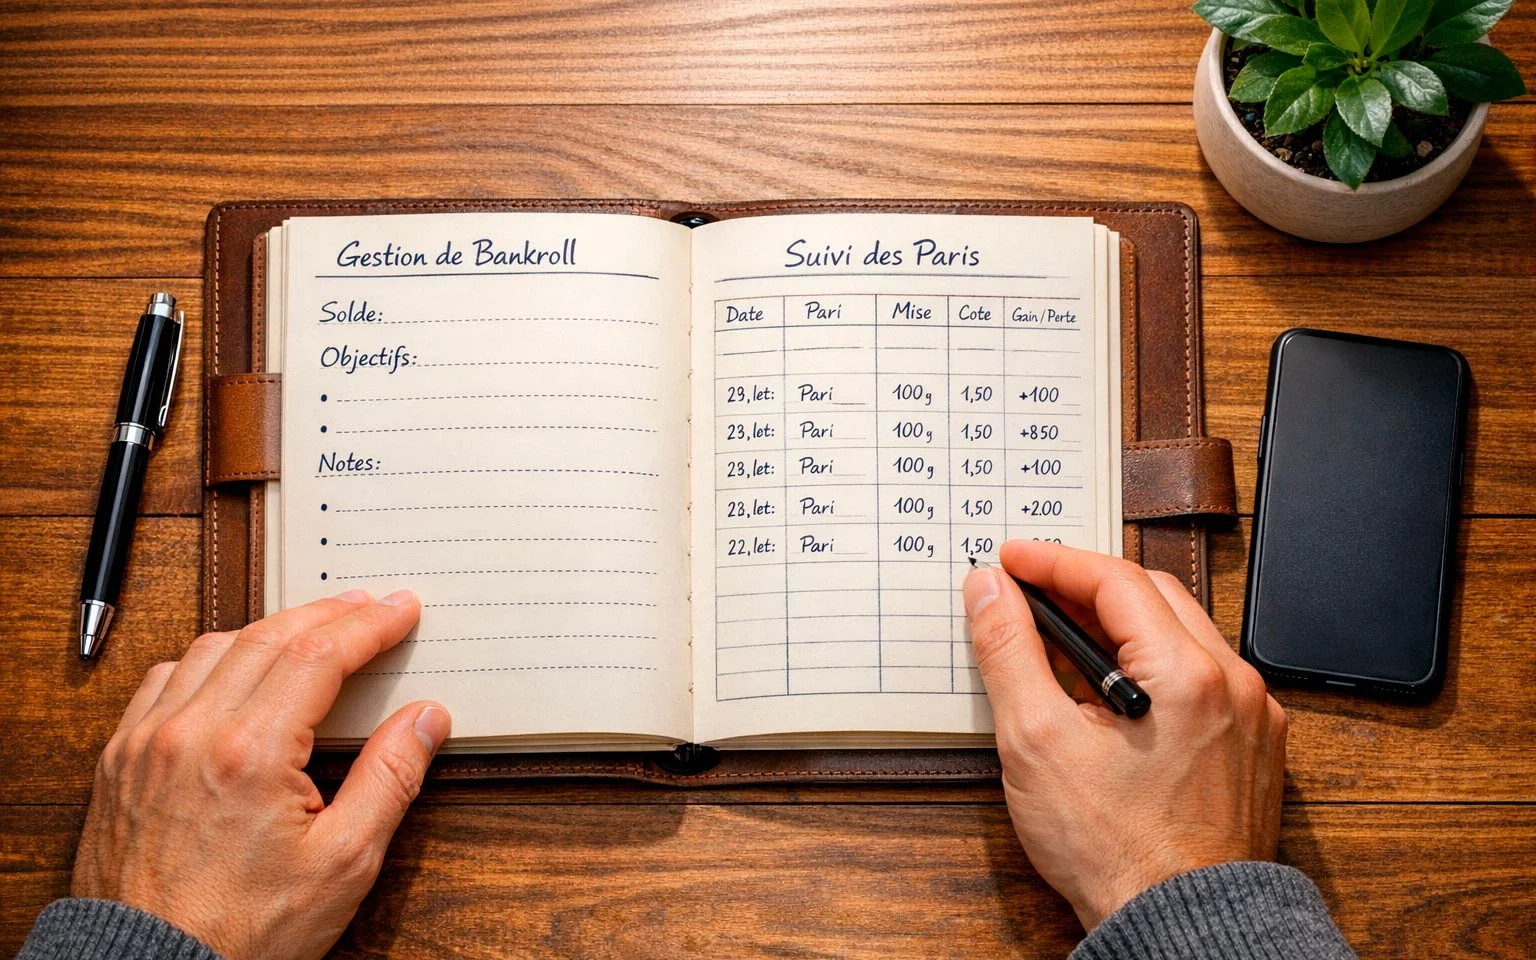 Gestion de Bankroll
Solde:
Objectifs:
•
•
Notes:
•
•
•
Suivi des Paris
Date Pari Mise Cote Gain / Perte
29, let: Pari 100g 1,50 +100
23, let: Pari 100g 1,50 +850
23, let: Pari 100g 1,50 +100
23, let: Pari 100g 1,50 +2.00
22, let: Pari 100g 1,50